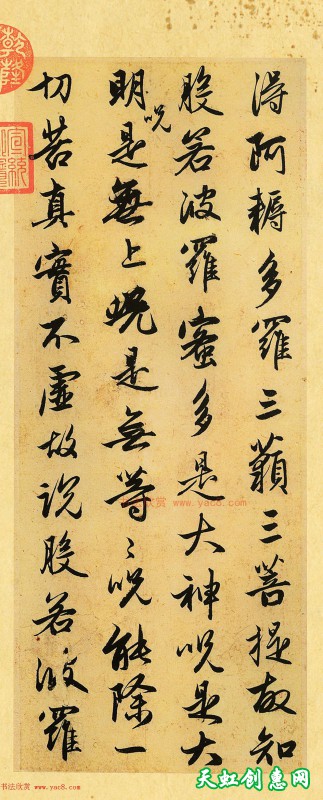 得阿耨多羅三藐三菩提故知
般若波羅蜜多是大神呪是大
明呪是無上呪是無等〻呪能除一
切苦真實不虛故說般若波羅
宣統
书法欣赏 www.yac8.com
书法欣赏 www.yac8.com
天虹创惠网